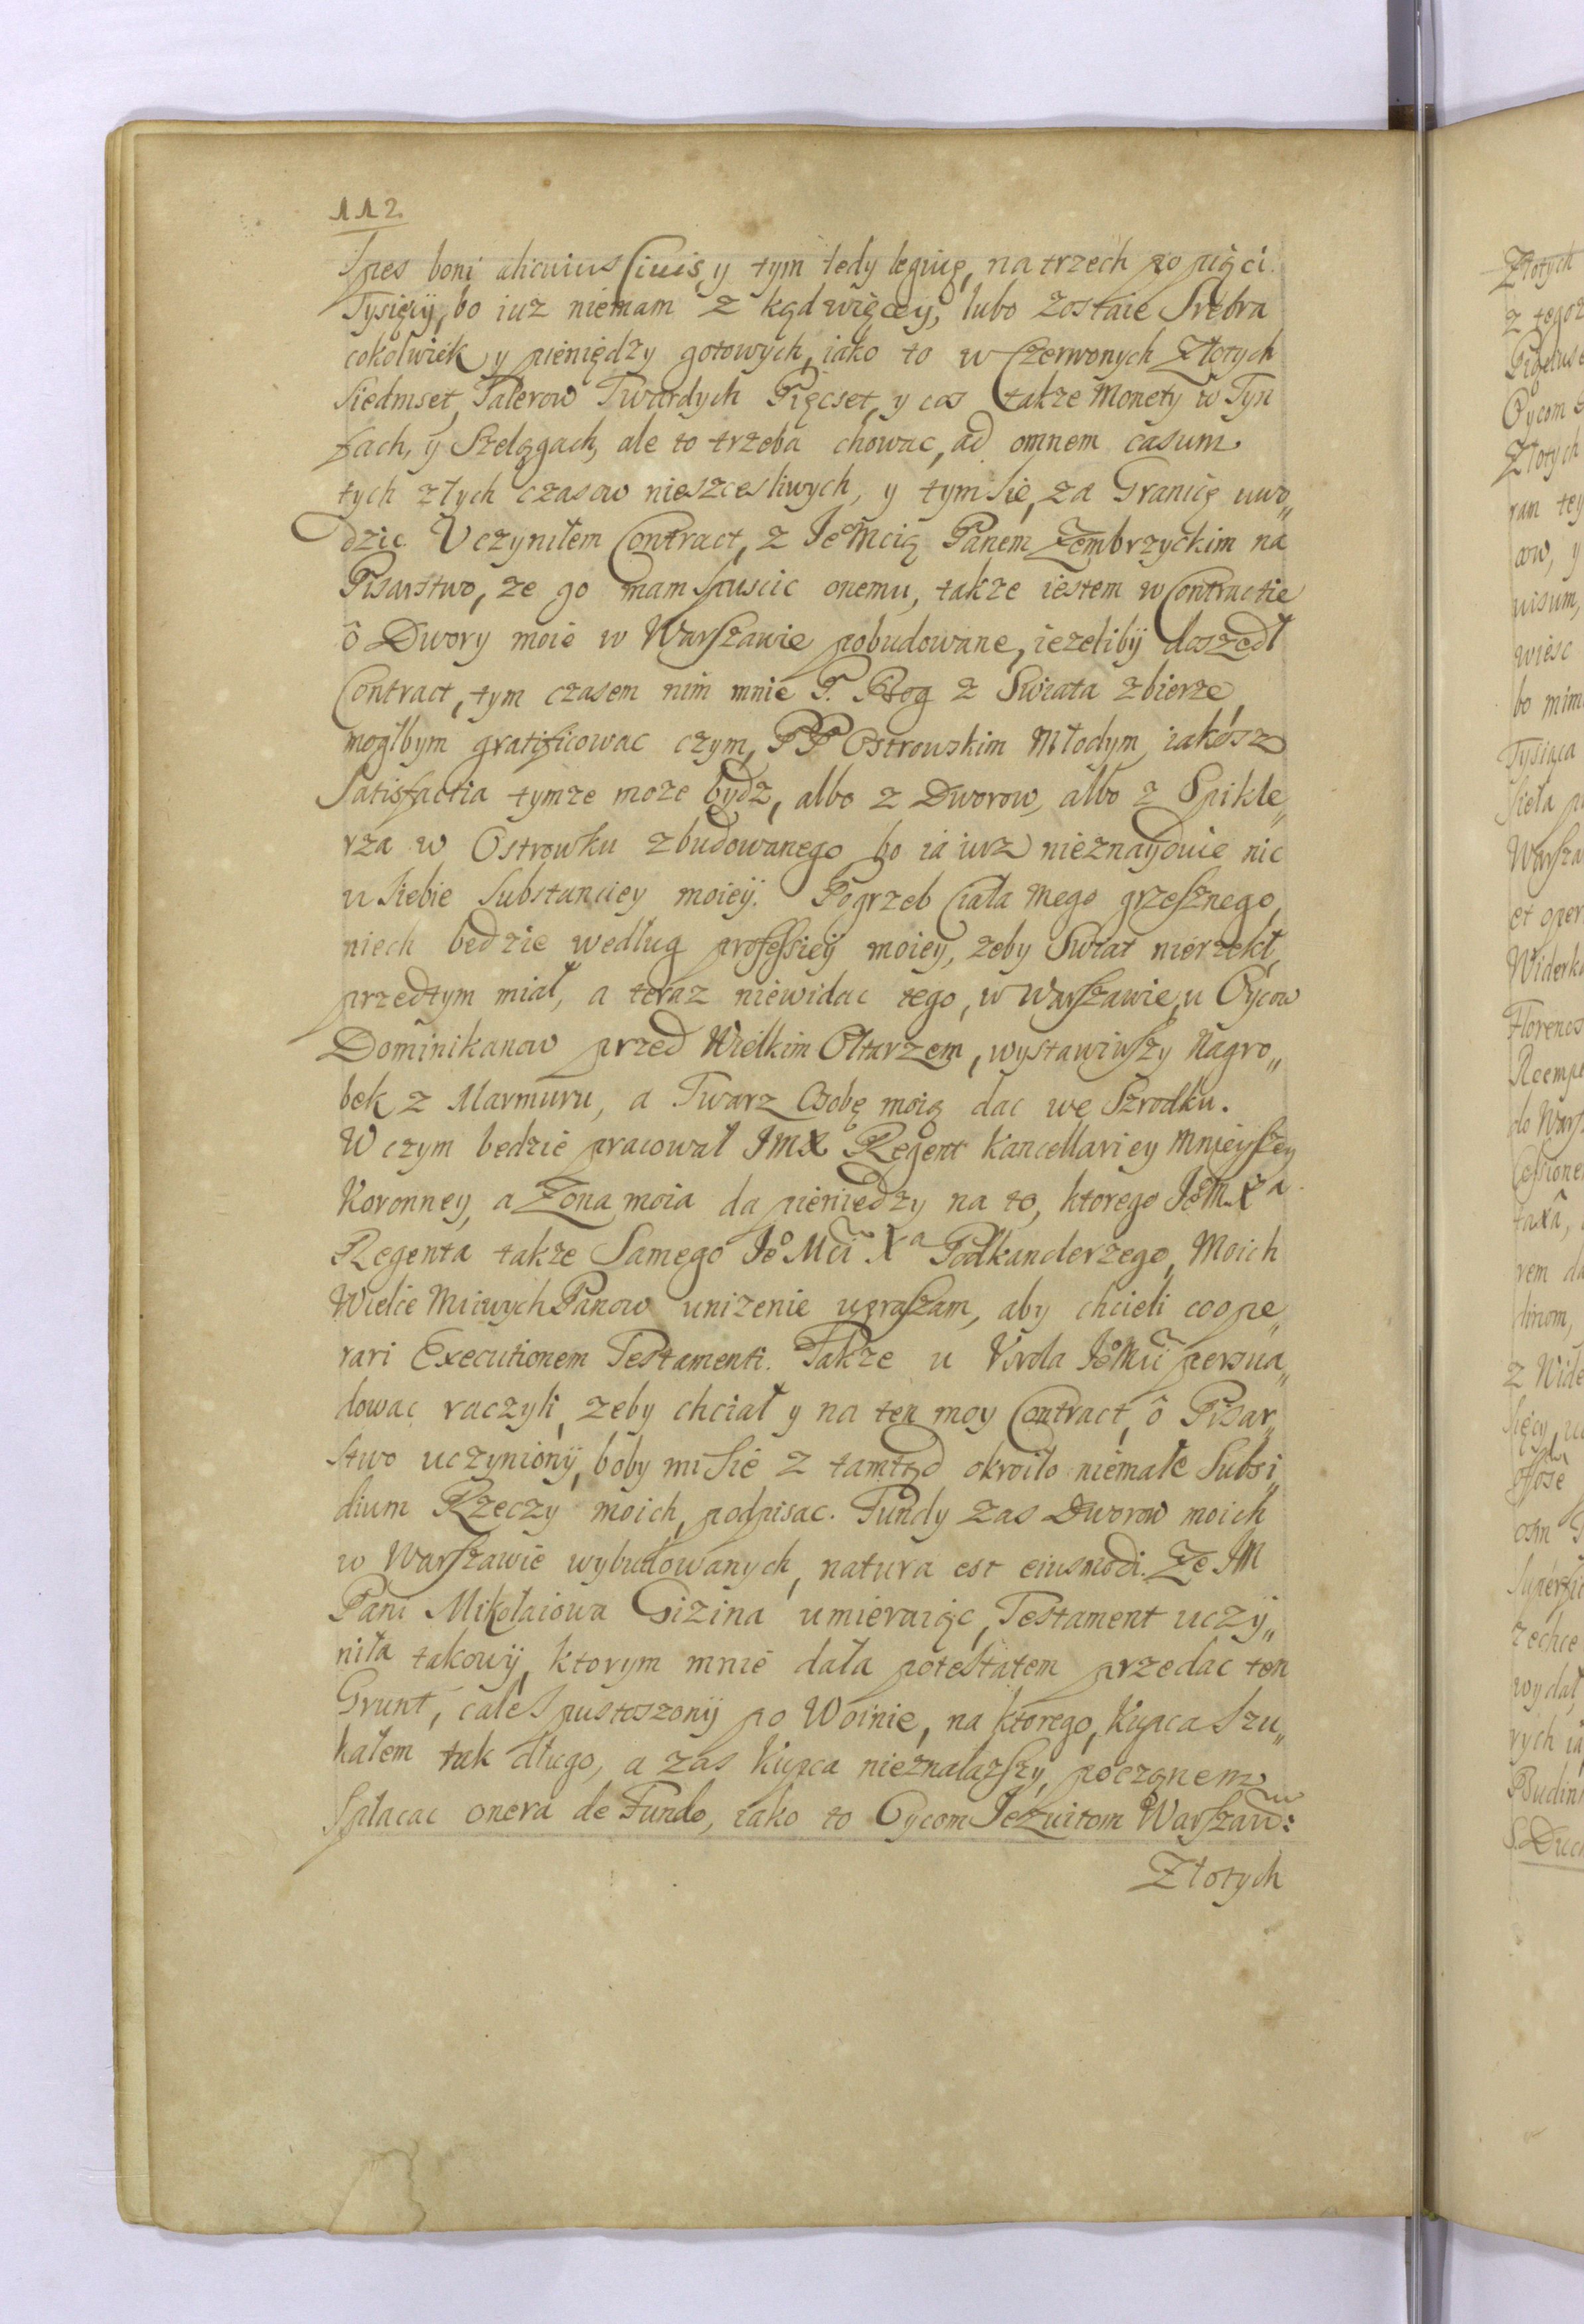 112.
Spes boni alicuius Civis, y tym tedy leguię, na trzech po pięci
Tysięcy, bo iuż niemam z kąd więcey, lubo zostaie Srebra
cokolwiek y pieniędzy gotowych, iako to w Czerwonych Złotych
siedmset, Talerow Twardych Pięcset, y cos także Monety w Tyn
fach, y Szelągach, ale to trzeba chowac, ad omnem casum
tych złych czasow nieszcesliwych, y tym sie, za Granicę uwo„
dzic. Uczyniłem Contract, z Jeo Mcią Panem Zembrzyckim na
Pisarstwo, ze go mam spuscic onemu, także iestem w Contractie
ô Dwory moie w Warszawie pobudowane, ieżeliby doszedł
Contract, tym czasem nim mnie P. Bog z Swiata zbierze,
mogłbym gratificowac czym, PP Ostrowskim Młodym, iakosz
Satisfactia tymże może bydz, albo z Dworow, albo z Spikle„
rza w Ostrowku zbudowanego bo ia iusz nieznayduie nic
u siebie Substanciey moiey. Pogrzeb Ciała mego grzesznego,
niech bedzie według professiey moiey, żeby Swiat nierzekł,
przedtym miał, a teraz niewidac tego, w Warszawie, u Oycow
Dominikanow przed Wielkim Ołtarzem, wystawiwszy Nagro„
bek z Marmuru, a Twarz Osobę moię dac we Szrodku.
W czym bedzie pracował JmX Regent Kancellariey Mnieyszey
Koronney, a Żona moia da pieniedzy na to, ktorego JeoM. Xa
Regenta także Samego Jeo Mci Xa Podkanclerzego, Moich
Wielce Mciwych Panow uniżenie upraszam, aby chcieli coope„
rari Executionem Testamenti. Także u Krola JeoMci persua„
dowac raczyli, żeby chciał y na ten moy Contract, ô Pisar„
stwo uczyniony, boby mi sie z tamtąd okroiło niemałe Subsi„
dium Rzeczy moich, podpisac. Fundy zas Dworow moich
w Warszawie wybudowanych, natura est eiusmodi. Że JM
Pani Mikołaiowa Gizina umieraiąc, Testament uczy„
niła takowy, ktorym mnie dała potestatem przedac ten
Grunt, cale spustoszony po Woinie, na ktorego, Kupca szu„
kałem tak długo, a zas Kupca nieznalazszy, począnem
Spłacac onera de Fundo, iako to Oycom Jezuitom Warszaw:
Złotych